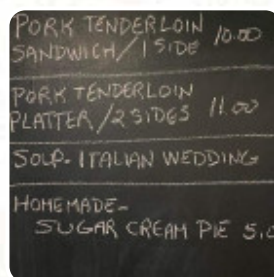 PORK TENDERLOIN
SANDWICH/1 SIDE 10.00
PORK TENDERLOIN
PLATTER/2 SIDES 11.00
SOUP- ITALIAN WEDDING
HOMEMADE-
SUGAR CREAM PIE 5.0